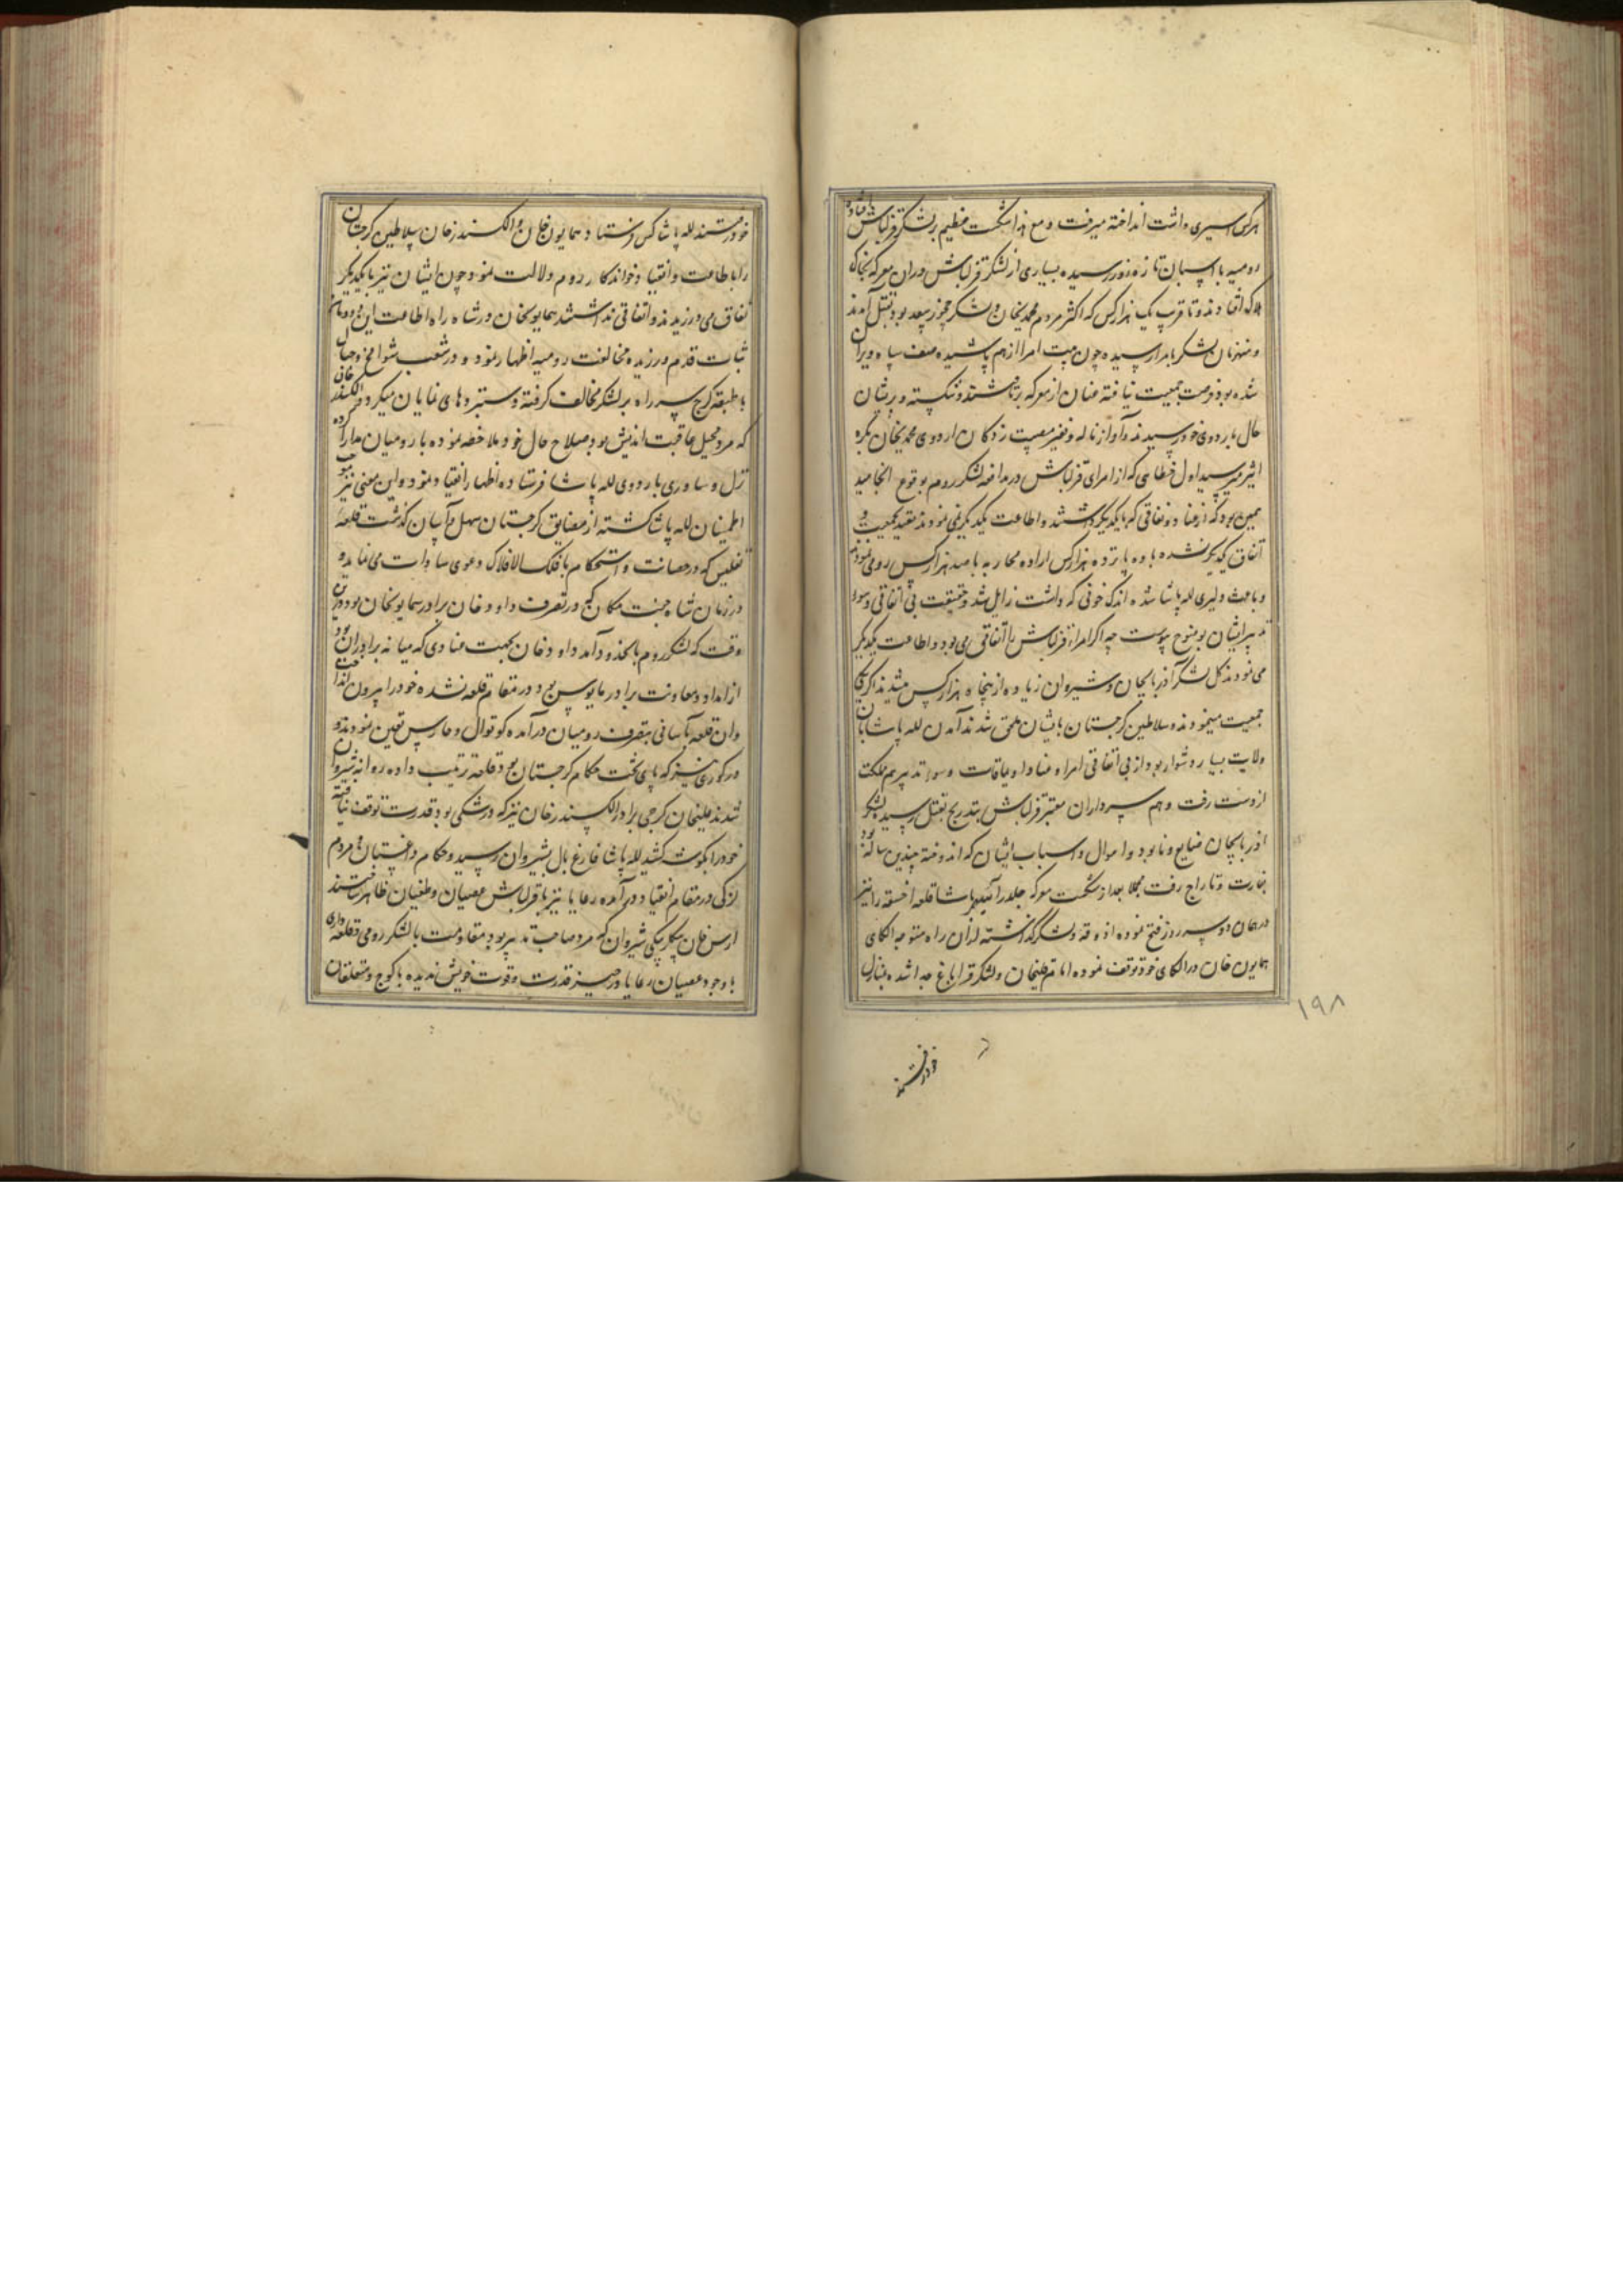 هر کس اسیری داشت انداخته میرفت و مع هذا شکست عظیم بر لشکر قزلباش
رومیه با اسبان تازه زور رسیده بسیاری از لشکر قزلباش در ان معرکه بخاک
هلاک افتادند و تا قریب یک هزار کس که اکثر مردم محمدیخان و لشکر چخور سعد بود بقتل آمدند
و منهزمان لشکر بامرا رسیده چون هیئت امرا از هم پاشیده صف سپاه ویران
شده بود فرصت جمعیت نیافته عنان از معرکه برتافتند و شکسته و پریشان
حال باردوی خود رسیدند و آواز ناله و نفیر مصیبت زدگان اردوی محمدیخان بکره
اثیر میرسید اول خطایی که از امرای قزلباش در مدافعه لشکر روم بوقوع انجامید
همین بود که از عناد و نفاقی که با یکدیگر داشتند و اطاعت یکدیگر نمی نمودند مقید بجمعیت و
اتفاق یکدیگر نشده با ده پانزده هزار کس اراده محاربه با صد هزار کس رومی نمودند
و باعث دلیری لله پاشا شده اندک خوفی که داشت زایل شد و حقیقت بی اتفاقی و سوء
تدبیر ایشان بوضوح پیوست چه اگر امراء قزلباش را اتفاقی می بود و اطاعت یکدیگر
می نمودند کل لشکر آذربایجان و شیروان زیاده از پنجاه هزار کس میشدند اگر یکجا
جمعیت مینمودند و سلاطین گرجستان بایشان ملحق شدند آمدن لله پاشا بان
ولایت بسیار دشوار بود از بی اتفاقی امراء عناد او یماقات و سوء تدبیر هم مملکت
از دست رفت و هم سرداران معتبر قزلباش بتدریج بقتل رسید لشکر
اذربایجان ضایع و نابود و اموال و اسباب ایشان که اندوخته چندین ساله بود
بغارت و تاراج رفت مجملا بعد از شکست معرکه جلدر لله پاشا قلعه اخسقه را نیز
در همان دو سه روز فتح نموده اذوقه و لشکر گذاشته از ان راه متوجه الکای
همایون خان در الکای خود توقف نموده امام قلیخان و لشکر قراباغ جدا شده بمنازل
۱۹۸
خود رفتند
خود رفتند لله پاشا کس فرستاد و سمایون خان و الکسندر خان سلاطین گرجستان
را باطاعت و انقیاد خواندکار روم دلالت نمود چون ایشان نیز با یکدیگر
نفاق می ورزیدند و اتفاقی نداشتند سمایونخان در شاه راه اطاعت این دودمان
ثبات قدم ورزیده مخالفت رومیه اظهار نمود و در شعب شوامخ و جبال
با طبقه گرج سر راه بر لشکر مخالف گرفته دستبردهای نمایان میکرد و الکسندر خان
که مرد محیل عاقبت اندیش بود صلاح حال خود ملاحظه نموده با رومیان مدارا کرده
نزل و ساوری باردوی لله پاشا فرستاده اظهار انقیاد نمود و این معنی نیز موجب
اطمینان لله پاشا گشته از مضایق گرجستان سهل و آسان گذشت قلعه
تفلیس که در حصانت و استحکام با فلک الافلاک دعوی مساوات می نماید و
در زمان شاه جنت مکان گنج در تصرف داود خان برادر سمایونخان بود درین
وقت که لشکر روم بانحدود آمد داود خان بجهت عنادی که میانه برادران بود
از امداد و معاونت برادر مایوس بود در مقام قلعه نشده خود را بیرون انداخت
و ان قلعه بآسانی بتصرف رومیان درآمده کوتوال و حارس تعین نمودند و
در کوری نیز که پای تخت حکام گرجستان بود قلعه ترتیب داده روانه شیروان
شدند قلیخان گرجی برادر الکسندر خان نیز که در شکی بود قدرت توقف نیافته
خود را بگوشه کشید لله پاشا فارغ بال بشیروان رسید و حکام داغستان و مردم
لزکی در مقام انقیاد درآمده رعایا نیز با قزلباش عصیان و طغیان ظاهر ساختند
ارس خان بیکلربیکی شیروان که مرد صاحب تدبیر بود مقاومت با لشکر رومی و قلعه داری
با وجود عصیان رعایا در حیز قدرت و قوت خویش ندیده با کوچ و متعلقان